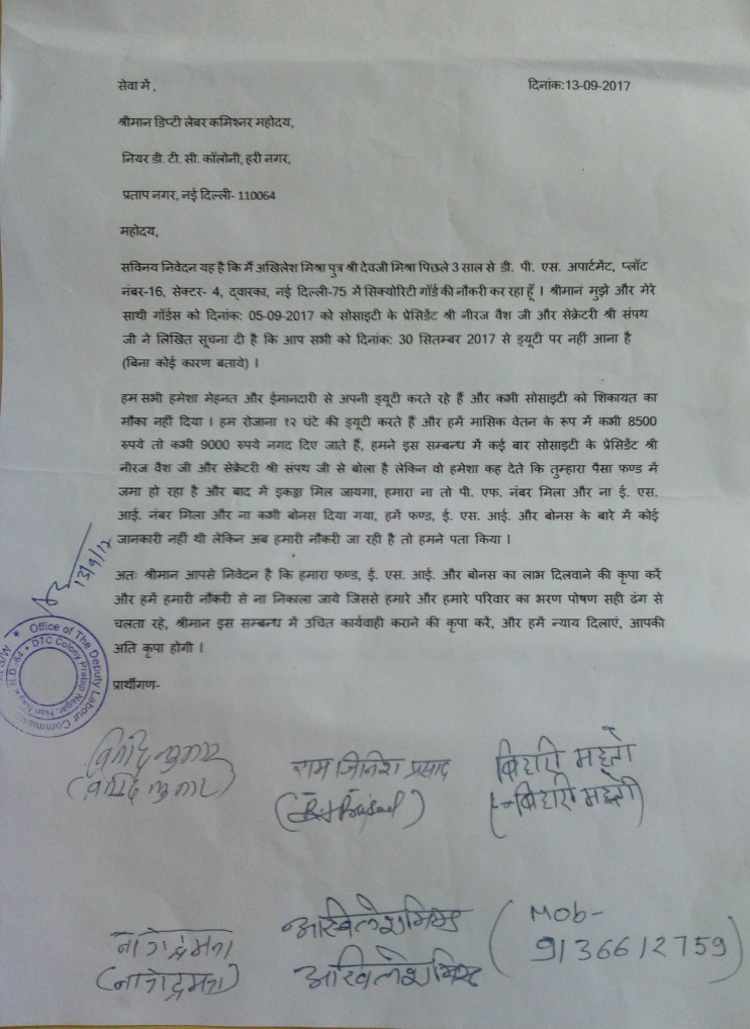 सेवा में , दिनांक:13-09-2017
श्रीमान डिप्टी लेबर कमिश्नर महोदय,
नियर डी. टी. सी. कॉलोनी, हरी नगर,
प्रताप नगर, नई दिल्ली- 110064
महोदय,
सविनय निवेदन यह है कि मैं अखिलेश मिश्रा पुत्र श्री देवजी मिश्रा पिछले 3 साल से डी. पी. एस. अपार्टमेंट, प्लॉट
नंबर-16, सेक्टर- 4, द्वारका, नई दिल्ली-75 में सिक्योरिटी गॉर्ड की नौकरी कर रहा हूँ । श्रीमान मुझे और मेरे
साथी गॉर्डस को दिनांक: 05-09-2017 को सोसाइटी के प्रेसिडेंट श्री नीरज वैश जी और सेक्रेटरी श्री संपथ
जी ने लिखित सूचना दी है कि आप सभी को दिनांक: 30 सितम्बर 2017 से ड्यूटी पर नहीं आना है
(बिना कोई कारण बताये) ।
हम सभी हमेशा मेहनत और ईमानदारी से अपनी ड्यूटी करते रहे हैं और कभी सोसाइटी को शिकायत का
मौका नहीं दिया । हम रोजाना १२ घंटे की ड्यूटी करते हैं और हमें मासिक वेतन के रूप में कभी 8500
रुपये तो कभी 9000 रुपये नगद दिए जाते हैं, हमने इस सम्बन्ध में कई बार सोसाइटी के प्रेसिडेंट श्री
नीरज वैश जी और सेक्रेटरी श्री संपथ जी से बोला है लेकिन वो हमेशा कह देते कि तुम्हारा पैसा फण्ड में
जमा हो रहा है और बाद में इकठ्ठा मिल जायगा, हमारा ना तो पी. एफ. नंबर मिला और ना ई. एस.
आई. नंबर मिला और ना कभी बोनस दिया गया, हमें फण्ड, ई. एस. आई. और बोनस के बारे में कोई
जानकारी नहीं थी लेकिन अब हमारी नौकरी जा रही है तो हमने पता किया ।
अतः श्रीमान आपसे निवेदन है कि हमारा फण्ड, ई. एस. आई. और बोनस का लाभ दिलवाने की कृपा करें
और हमें हमारी नौकरी से ना निकाला जाये जिससे हमारे और हमारे परिवार का भरण पोषण सही ढंग से
चलता रहे, श्रीमान इस सम्बन्ध में उचित कार्यवाही कराने की कृपा करें, और हमें न्याय दिलाएं, आपकी
अति कृपा होगी ।
13/9/17
Office of The Deputy Labour Commissi
DTC Colony Pratap Nagar, Hari Nag
प्रार्थीगण-
राम जिनिश प्रसाद बिहारी महतो
बिहारी महतो
अखिलेश मिश्र
अखिलेश मिश्र
Mob-
9136612759